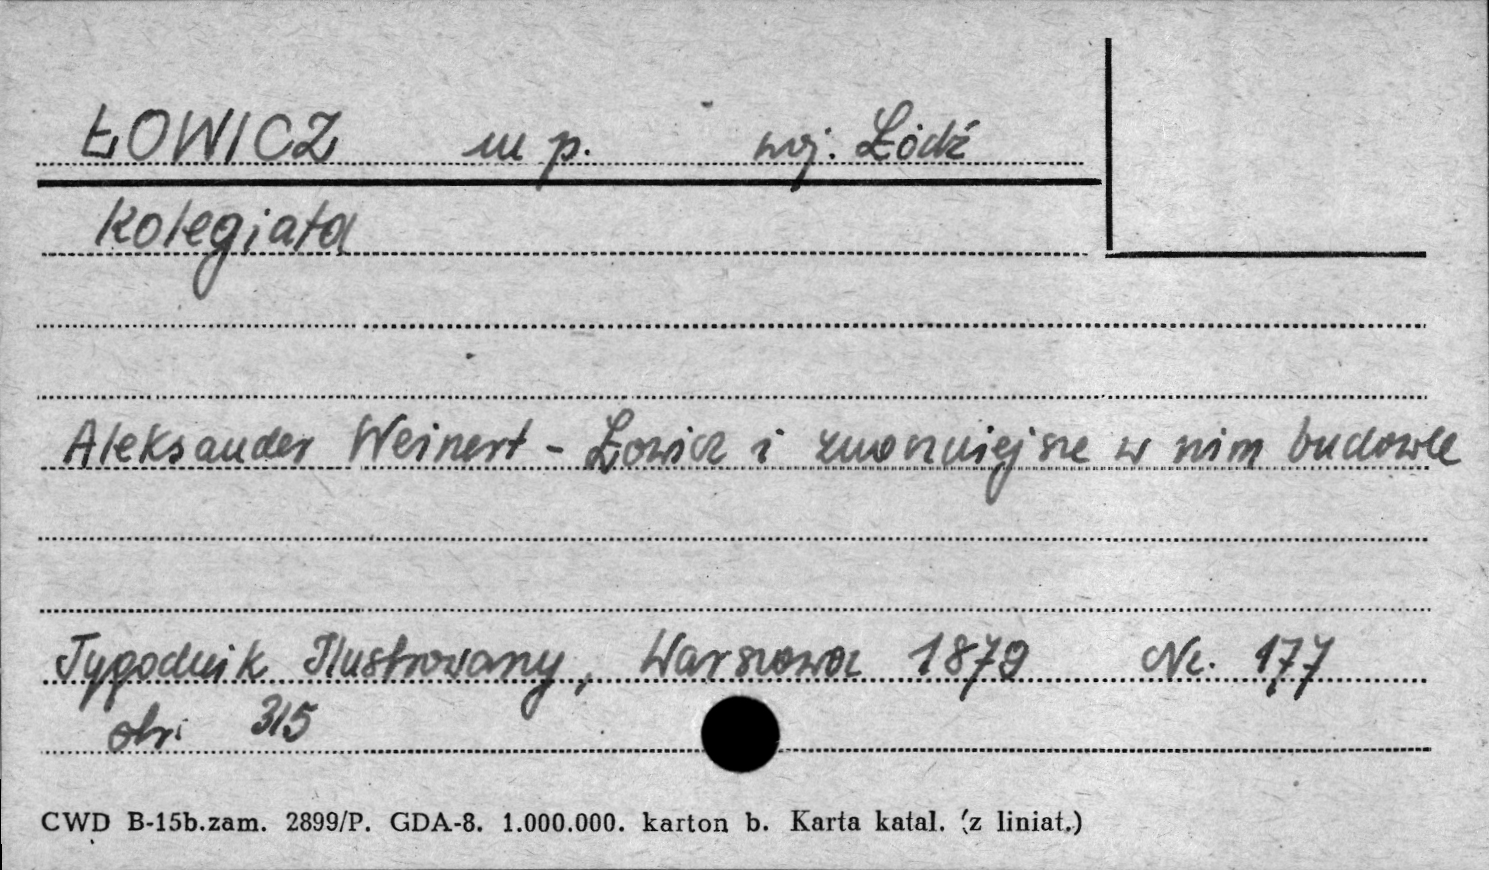 ŁOWICZ m p. woj. Łódź
Kolegiata
Aleksander Weinert - Łowicz i znaczniejsze w nim budowle
Tygodnik Ilustrowany, Warszawa 1879 Nr. 177
str. 315
CWD B-15b.zam. 2899/P. GDA-8. 1.000.000. karton b. Karta katal. (z liniat.)